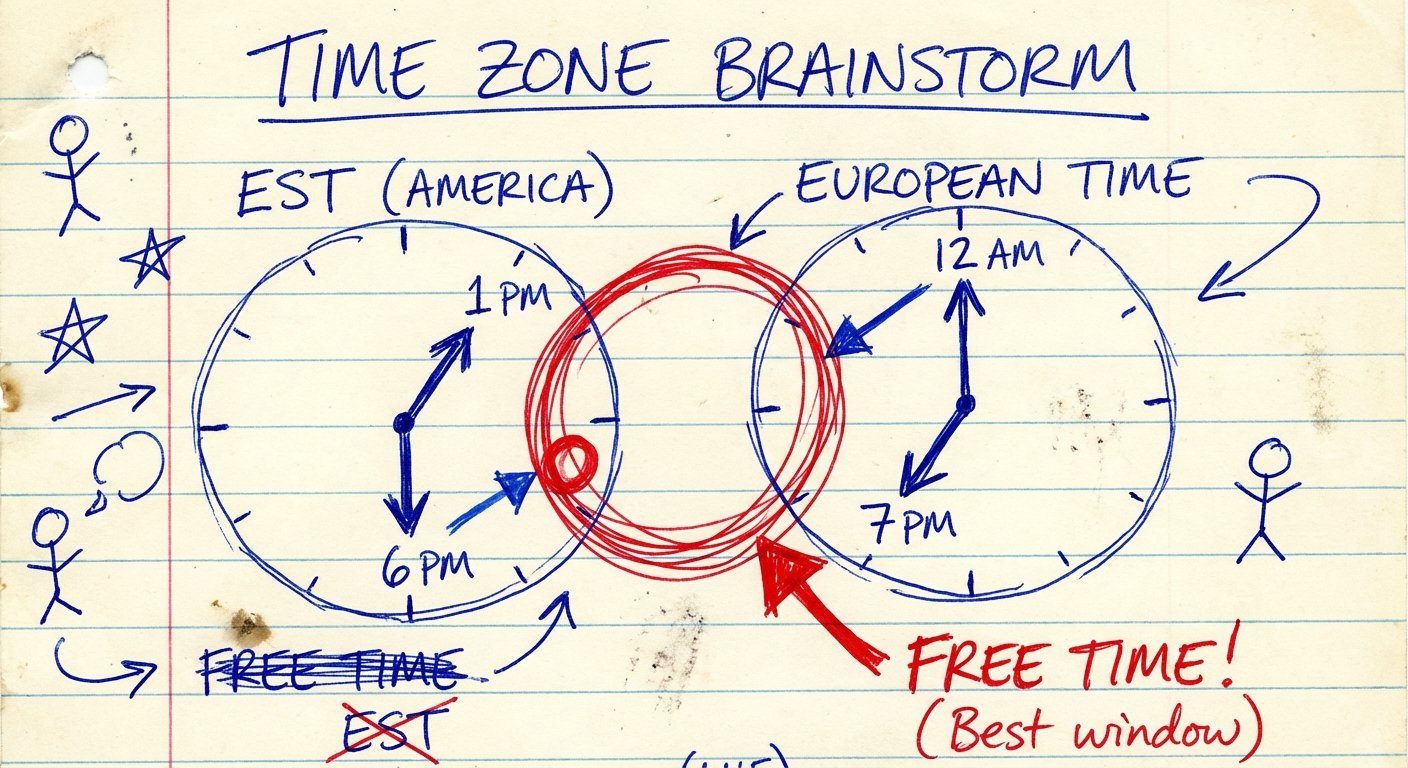 TIME ZONE BRAINSTORM
EST (AMERICA)
EUROPEAN TIME
1 PM
6 PM
12 AM
7 PM
FREE TIME
EST
FREE TIME!
(Best window)